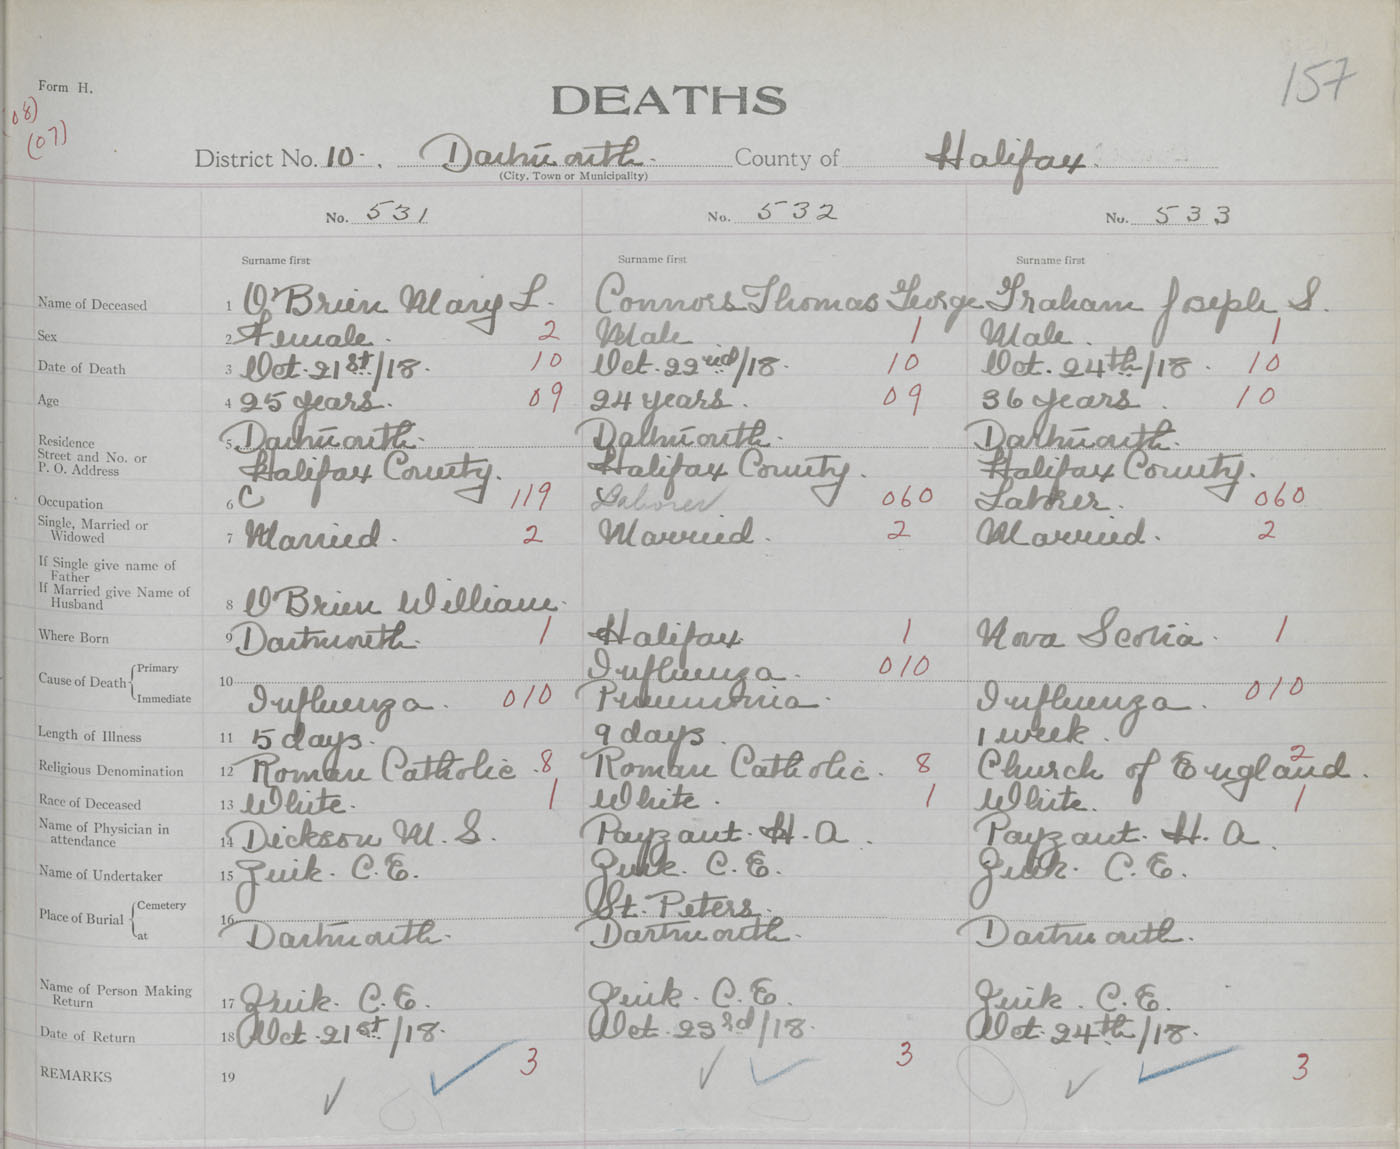 157
Form H.
DEATHS
(08)
(07)
District No. 10. Dartmouth. County of Halifax.
(City, Town or Municipality)
No. 531 No. 532 No. 533
Surname first Surname first Surname first
Name of Deceased 1 O'Brien Mary L. Connors Thomas George Graham Joseph S.
Sex 2 Female. 2 Male 1 Male. 1
Date of Death 3 Oct. 21st/18. 10 Oct. 22nd/18. 10 Oct. 24th/18. 10
Age 4 25 years. 09 24 years. 09 36 years. 10
Residence 5 Dartmouth. Dartmouth. Dartmouth.
Street and No. or
P. O. Address Halifax County. Halifax County. Halifax County.
Occupation 6 C 119 Laborer 060 Laborer. 060
Single, Married or
Widowed 7 Married. 2 Married. 2 Married. 2
If Single give name of
Father
If Married give Name of
Husband 8 O'Brien William.
Where Born 9 Dartmouth. 1 Halifax 1 Nova Scotia. 1
Cause of Death Primary 10 Influenza. 010
Immediate Influenza. 010 Pneumonia. Influenza. 010
Length of Illness 11 5 days. 9 days. 1 week.
Religious Denomination 12 Roman Catholic. 8 Roman Catholic. 8 Church of England. 2
Race of Deceased 13 White. 1 White. 1 White. 1
Name of Physician in
attendance 14 Dickson M. S. Payzant. H. A. Payzant. H. A.
Name of Undertaker 15 C. E. C. E. C. E.
Place of Burial Cemetery 16 St. Peters.
at Dartmouth. Dartmouth. Dartmouth.
Name of Person Making
Return 17 C. E. C. E. C. E.
Date of Return 18 Oct. 21st/18. Oct. 23rd/18. Oct. 24th/18.
REMARKS 19 3 3 3